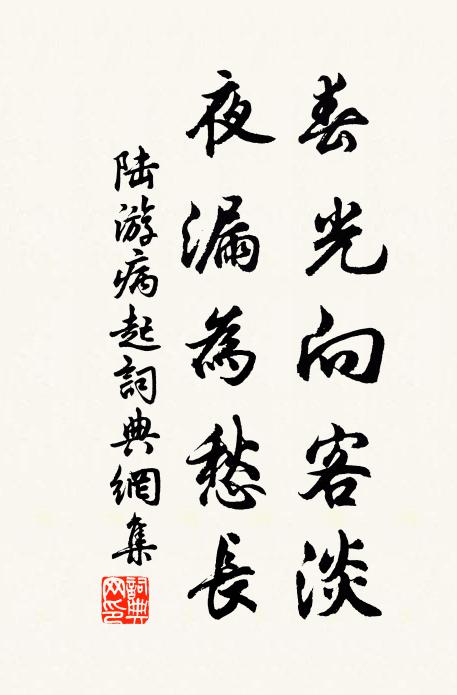 春光向客淡
夜漏為愁長
陸游病起詞典網集
詞典網印